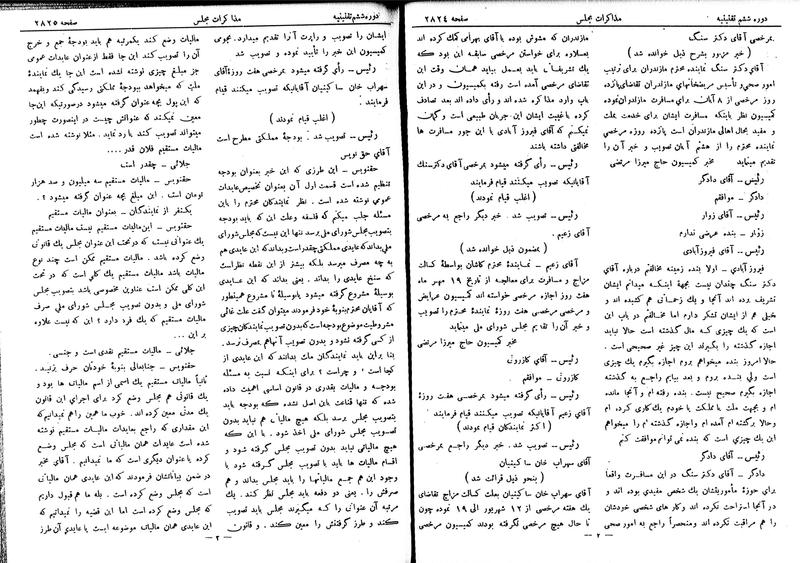 دوره ششم تقنینیه
مذاکرات مجلس
صفحه ۲۸۲۴
بمرخصی آقای دکتر سنگ
( خبر مزبور بشرح ذیل خوانده شد )
آقای دکتر سنگ نماینده محترم مازندران برای ترتیب
امور صحی و تأسیس مریضخانهای مازندران تقاضای پانزده
روز مرخصی از ۸ آبان برای مسافرت مازندران نموده
کمیسیون نظر باینکه مسافرت ایشان برای خدمت بملت
و مفید بحال اهالی مازندران است پانزده روز مرخصی
نماینده محترم را از هشتم آبان تصویب و خبر آن را
تقدیم مینماید مخبر کمیسیون حاج میرزا مرتضی
رئیس ــ آقای دادگر
دادگر ــ موافقم
رئیس ــ آقای زوار
زوار ــ بنده عرضی ندارم
رئیس ــ آقای فیروزآبادی
فیروزآبادی ــ اولا بنده زمینه مخالفتم درباره آقای
دکتر سنگ چندان نیست بجهة اینکه میدانم ایشان
تشریف برده اند آنجا و یك زحماتی هم کشیده اند و
خیلی هم از ایشان تشکر دارم اما مخالفتم در باب این
است که یك چیزی که مال گذشته است حالا نباید
اجازه گذشته را بگیرند این چیز غیر صحیحی است .
حالا امروز بنده میخواهم بروم اجازه بگیرم یك چیزی
است ولی بنده بروم و بعد بیایم راجع به گذشته
اجازه بگیرم صحیح نیست . بنده رفته ام و آنجا مانده
ام و بجهت ملت یا مملکت یا خودم یك کاری کرده ام
وحالا برگشته ام آمده ام واجازه گذشته ام را میخواهم
این یك چیزی است که بنده نمی توانم موافقت کنم
رئیس ــ آقای دادگر
دادگر ــ آقای دکتر سنگ در این مسافرت واقعاً
برای حوزهٔ مأموریتشان یك شخص مفیدی بوده اند و
در آنجا استراحت نکرده اند وکار های شخصی خودشان
را هم مراقبت نکرده اند ومنحصراً راجع به امور صحی
مازندران که مشوش بوده با آقای بهرامی کمك کرده اند
بعلاوه برای خواستن مرخصی سابقه این بود که
یك تشریفاتی باید بعمل بیاید همان وقت این
تقاضای مرخصی آمده است رفته بکمیسیون و در این
باب وارد مذاکره شده اند و رأی داده اند بعد تصادف
کرده با غیبت ایشان این جریان طبیعی است و گمان
نمیکنم که آقای فیروز آبادی با این جور مسافرت ها
مخالفتی داشته باشند
رئیس ــ رأی گرفته میشود بمرخصی آقای دکتر سنگ
آقایانیکه تصویب میکنند قیام فرمایند
( اغلب قیام نمودند )
رئیس ــ تصویب شد . خبر دیگر راجع به مرخصی
آقای زعیم .
( بمضمون ذیل خوانده شد )
آقای زعیم ــ نمایندهٔ محترم کاشان بواسطهٔ کسالت
مزاج و مسافرت برای معالجه از تاریخ ۱۹ مهر ماه
هفت روز اجازه مرخصی خواسته اند کمیسیون عرایض
و مرخصی هفت روزهٔ نمایندهٔ محترم را تصویب
و خبر آن را تقدیم مجلس شورای ملی مینماید
مخبر کمیسیون حاج میرزا مرتضی
رئیس ــ آقای کازرونی
کازرونی ــ موافقم .
رئیس ــ رأی گرفته میشود بمرخصی هفت روزهٔ
آقای زعیم آقایانیکه تصویب میکنند قیام فرمایند
( اکثر نمایندگان قیام نمودند )
رئیس ــ تصویب شد. خبر دیگر راجع بمرخصی
آقای سهراب خان ساکینیان
( بنحو ذیل قرائت شد )
آقای سهراب خان ساکینیان بعلت کسالت مزاج تقاضای
یك هفته مرخصی از ۱۲ شهریور الی ۱۹ نموده چون
تا حال هیچ مرخصی نگرفته بودند کمیسیون مرخصی
ــ ۲ ــ
دوره ششم تقنینیه
مذاکرات مجلس
صفحه ۲۸۲۵
ایشان را تصویب و راپرت آنرا تقدیم میدارد. بعمومی
کمیسیون این خبر را تأیید نموده و تصویب شد
رئیس ــ رأی گرفته میشود بمرخصی هفت روزهٔ آقای
سهراب خان ساکینیان آقایانیکه تصویب میکنند قیام
فرمایند
( اغلب قیام نمودند )
رئیس ــ تصویب شد : بودجهٔ مملکتی مطرح است
آقای حق نویس
حقنویس ــ این طرزی که این خبر بعنوان بودجه
تنظیم شده است قسمت اول آن بعنوان تخصیص عایدات
عمومی نوشته شده است . نظر نمایندگان محترم را باین
مسئله جلب میکنم که فلسفه وعلت این که باید بودجه
بتصویب مجلس شورای ملی برسد تنها این نیست که مجلس شورای
ملی بداند که عایدی مملکتی چقدر است و بداند که این عایدی هم
به چه مصرف میرسد بلکه بیشتر از این نقطه نظر است
که سنخ عایدی را بداند . یعنی بداند که این عایدی
بوسیلهٔ مشروع گرفته میشود یا بوسیلهٔ نا مشروع همینطور
که آقایان محترم بنوبهٔ خود فرمودند میتوان گفت علت غائی
مشروطیت موضوع بودجه است که بدون تصویب نمایندگان چیزی
از کسی گرفته نشود و بدون تصویب آنها هم بمصرف نرسد .
بنا براین باید نمایندگان ملت بدانند که این عایدی از
کجا است و چرا است ؟ برای اینکه نسبت به مسئله
بودجه و مالیات بقدری در قانون اساسی اهمیت داده
شده که تنها قناعت باین اصل نشده که بودجه باید
بتصویب مجلس برسد بلکه هیچ مالیاتی هم نباید بدون
تصویب مجلس شورای ملی اخذ شود . با این که
هیچ مالیاتی نباید بدون تصویب مجلس گرفته شود و
اقسام مالیات ها باید با تصویب مجلس گرفته شود با
وجود این هم جمع مالیاتها را باید مجلس بداند و هم
صرفش را . یعنی دو دفعه باید مجلس نظر کند . یك
مرتبه آن عنوانی را که میگیرند مجلس باید تصویب
کند و طرز گرفتنش را معین کند . و قانون
مالیات وضع کند یکمرتبه هم باید بودجهٔ جمع و خرج
آن را تصویب کند این جا فقط از عنوان عایدات عمومی
جز مبلغ چیزی نوشته نشده است این جا یك نمایندهٔ
ملت که میخواهد بودجهٔ مملکتی رسیدگی کند وبفهمد
که این پول بچه عنوان گرفته میشود درصورتیکه این جا
معین نمیکنند که عنوانش چیست در اینصورت چطور
میتواند تصویب کند یا رد نماید . مثلا نوشته شده است
مالیات مستقیم فلان قدر ....
جلائی ــ چقدر است
حقنویس ــ مالیات مستقیم سه میلیون و سد هزار
تومان است . این مبلغ بچه عنوان گرفته میشود ؟ .
یکنفر از نمایندگان ــ بعنوان مالیات مستقیم
حقنویس ــ این مالیات مستقیم نیست مالیات مستقیم
یك عنوانی نیست که در تحت این عنوان مجلس یك قانونی
وضع کرده باشد . مالیات مستقیم ممکن است چند نوع
مالیات باشد مالیات مستقیم یك کلی است که در تحت
این کلی ممکن است عناوین مخصوصی باشد بتصویب مجلس
شورای ملی و بدون تصویب مجلس شورای ملی صرف
مالیات مستقیم که یك فرد دارد ؟ این که نیست علاوه
بر این ...
جلائی ــ مالیات مستقیم نقدی است و جنسی .
حقنویس ــ جنابعالی بنوبهٔ خودتان حرف بزنید .
ثانیاً مالیات مستقیم یك اسمی از اسم مالیات ها بود و
یك قانونی هم مجلس وضع کرد برای اجرای این قانون
یك مدتی معین کرده اند . خوب ما همین را هم نمیدانیم که
این مقداری که راجع بعایدات مالیات مستقیم نوشته
شده است عایدات همان مالیاتی است که مجلس وضع
کرده یا عنوان دیگری است که ما نمیدانیم . آقای مخبر
در ضمن بیاناتشان فرمودند که این عایدی همان مالیاتی
است که مجلس وضع کرده است . بله ما هم قبول داریم
که مجلس وضع کرده است اما این قضیه را نمیدانیم که
این عایدی همان مالیات موضوعه است یا عایدی آن طرز
ــ ۳ ــ